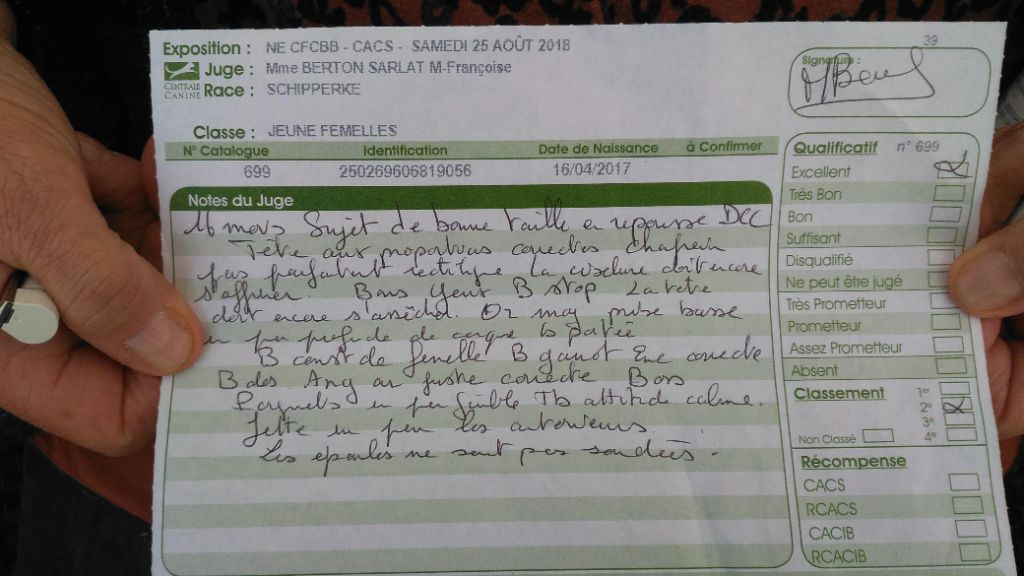 39
Exposition : NE CFCBB - CACS - SAMEDI 25 AOÛT 2018
Juge : Mme BERTON SARLAT M-Françoise
CENTRALE CANINE
Race : SCHIPPERKE
Signature :
Classe : JEUNE FEMELLES
N° Catalogue Identification Date de Naissance à Confirmer
699 250269606819056 16/04/2017
Notes du Juge
16 mois Sujet de bonne taille en repousse DCC
Tête aux proportions correctes chanfrein
pas parfaitement rectiligne La ciselure doit encore
s'affiner. Bons yeux B stop La tête
doit encore s'assécher. Or moy basse
un peu de coque
B const de femelle B garrot correcte
B dos Ang av juste correcte Bons
un peu faible Tb attitude calme.
Jette un peu les antérieurs.
Les épaules ne sont pas soudées.
Qualificatif n° 699
Excellent
Très Bon
Bon
Suffisant
Disqualifié
Ne peut être jugé
Très Prometteur
Prometteur
Assez Prometteur
Absent
Classement 1er
2e
3e
Non Classé 4e
Récompense
CACS
RCACS
CACIB
RCACIB